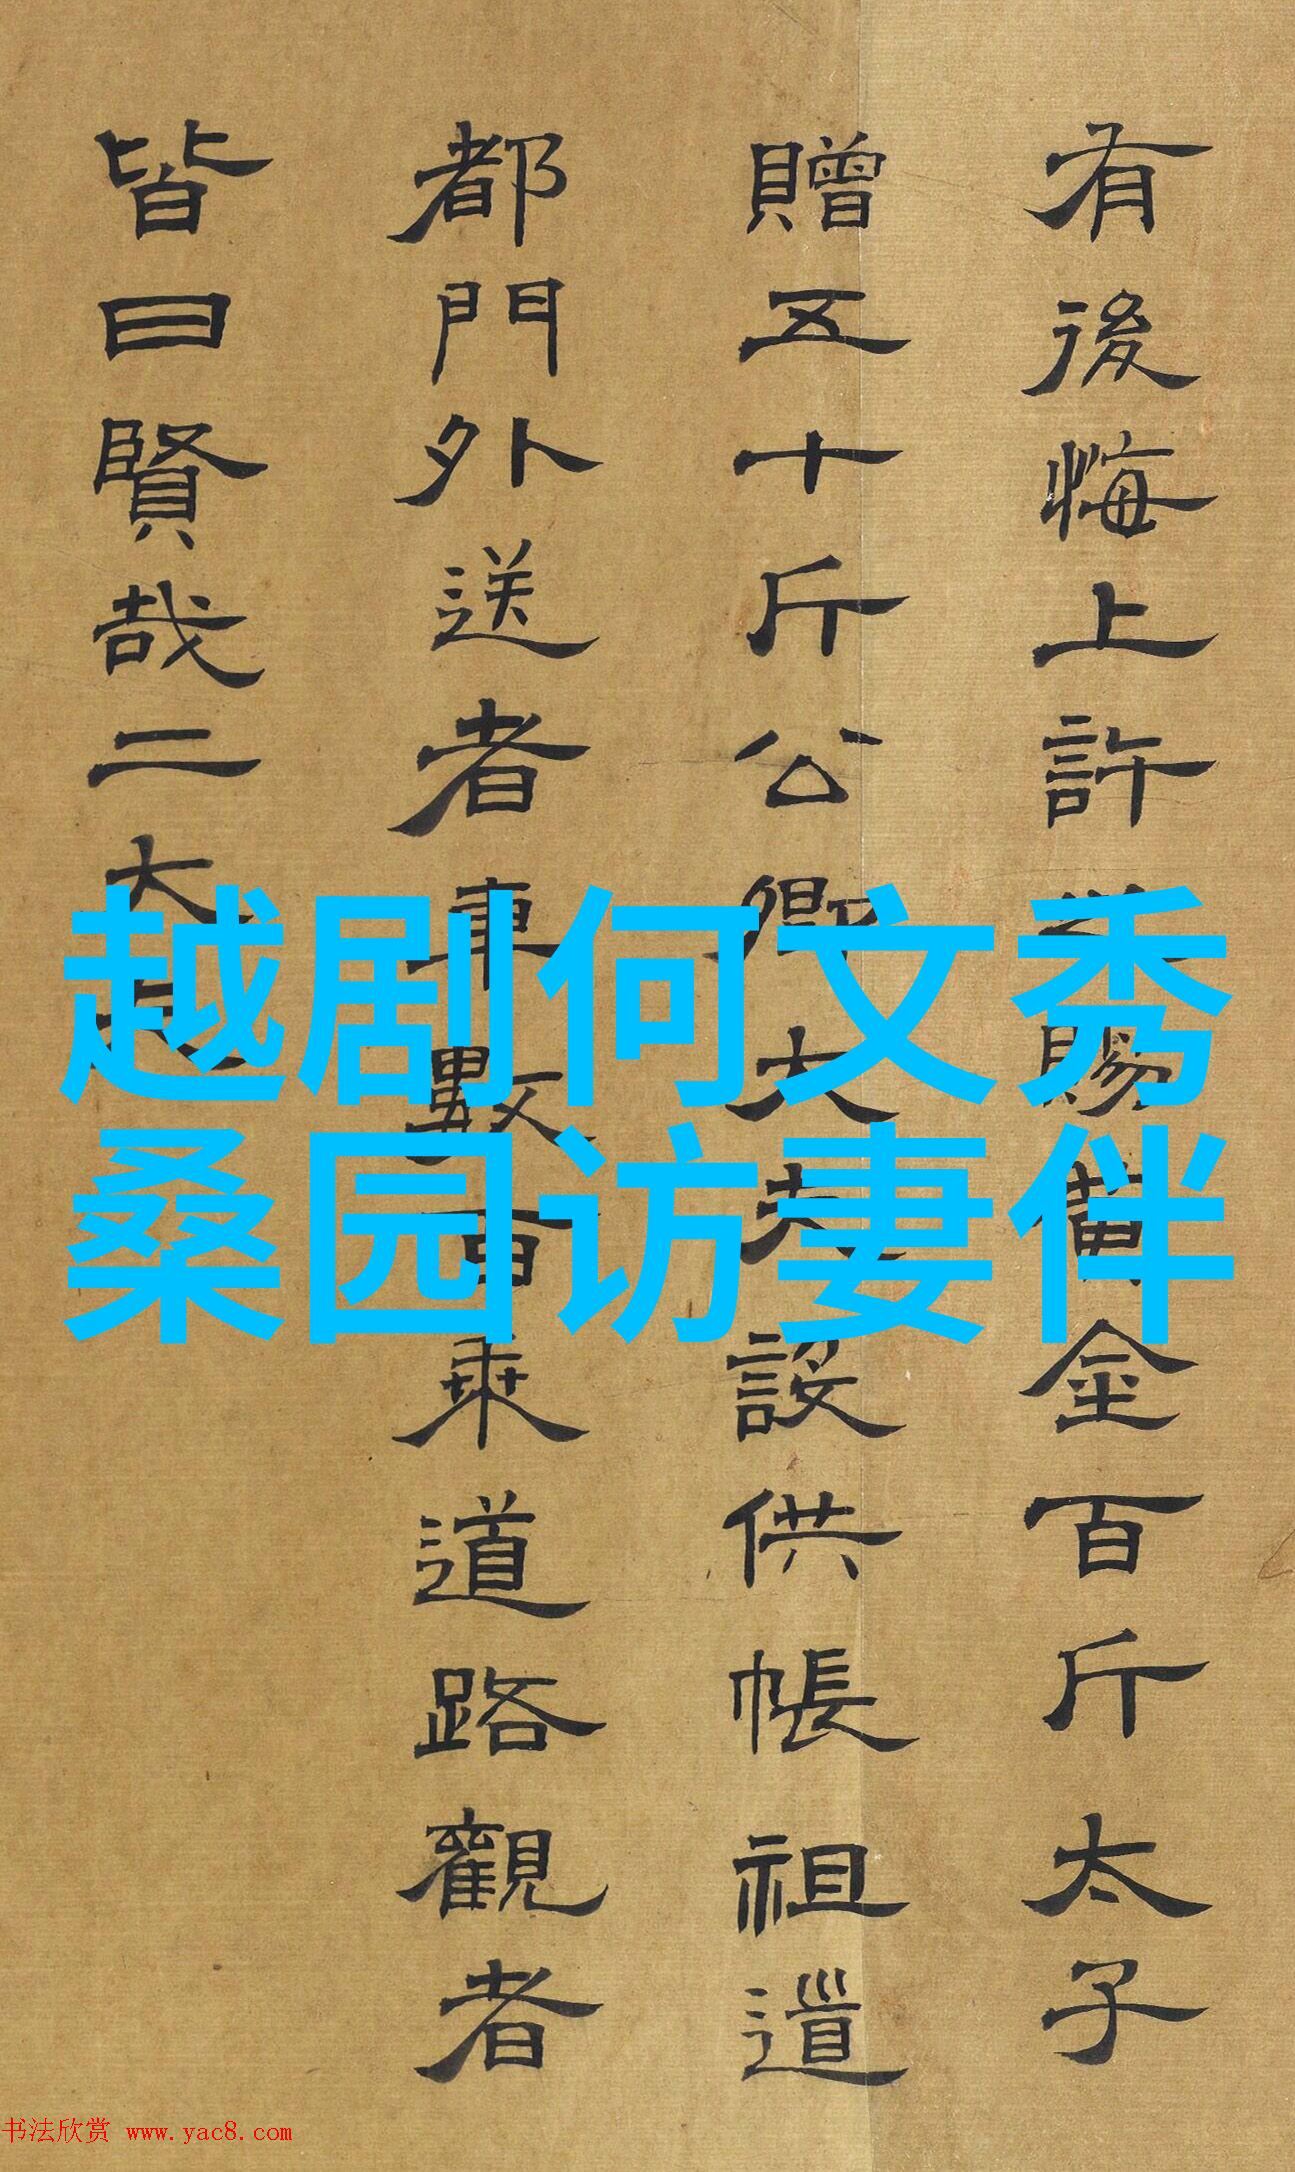 有後悔上許賜黃金百斤太子
贈五十斤公卿大夫設供帳祖道
都門外送者車數百乘道路觀者
皆曰賢哉二大夫
越剧何文秀
桑园访妻伴
书法欣赏 www.yac8.com